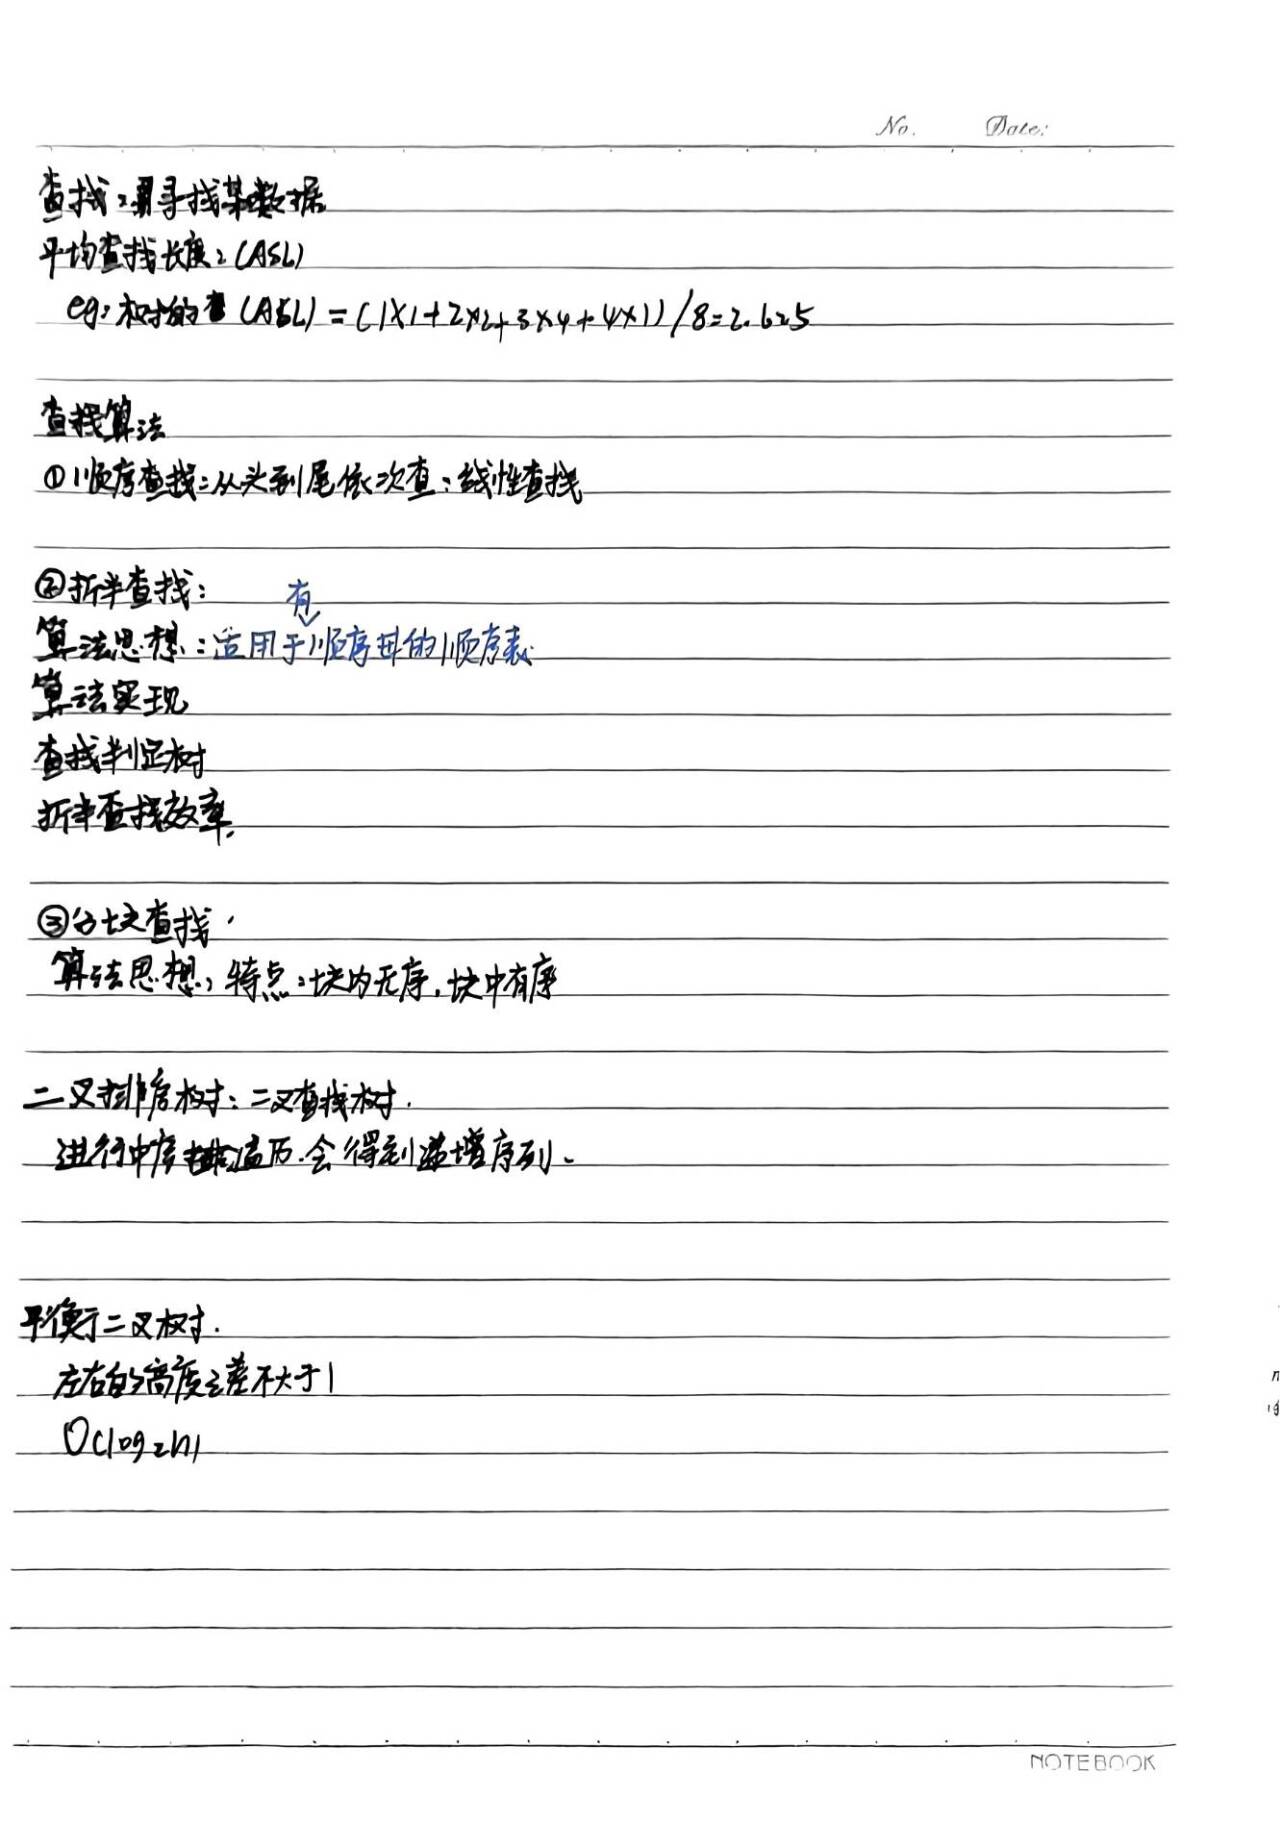 No. Date:
查找:寻找某数据
平均查找长度:(ASL)
eg:树的查(ASL)=(1×1+2×2+3×4+4×1)/8=2.625
查找算法
①顺序查找:从头到尾依次查:线性查找
②折半查找:
有
算法思想:适用于顺序的顺序表
算法实现
查找判定树
折半查找效率.
③分块查找.
算法思想,特点:块内无序,块中有序
二叉排序树:二叉查找树.
进行中序遍历.会得到递增序列.
平衡二叉树.
左右的高度之差不大于1
O(log2n)
NOTEBOOK